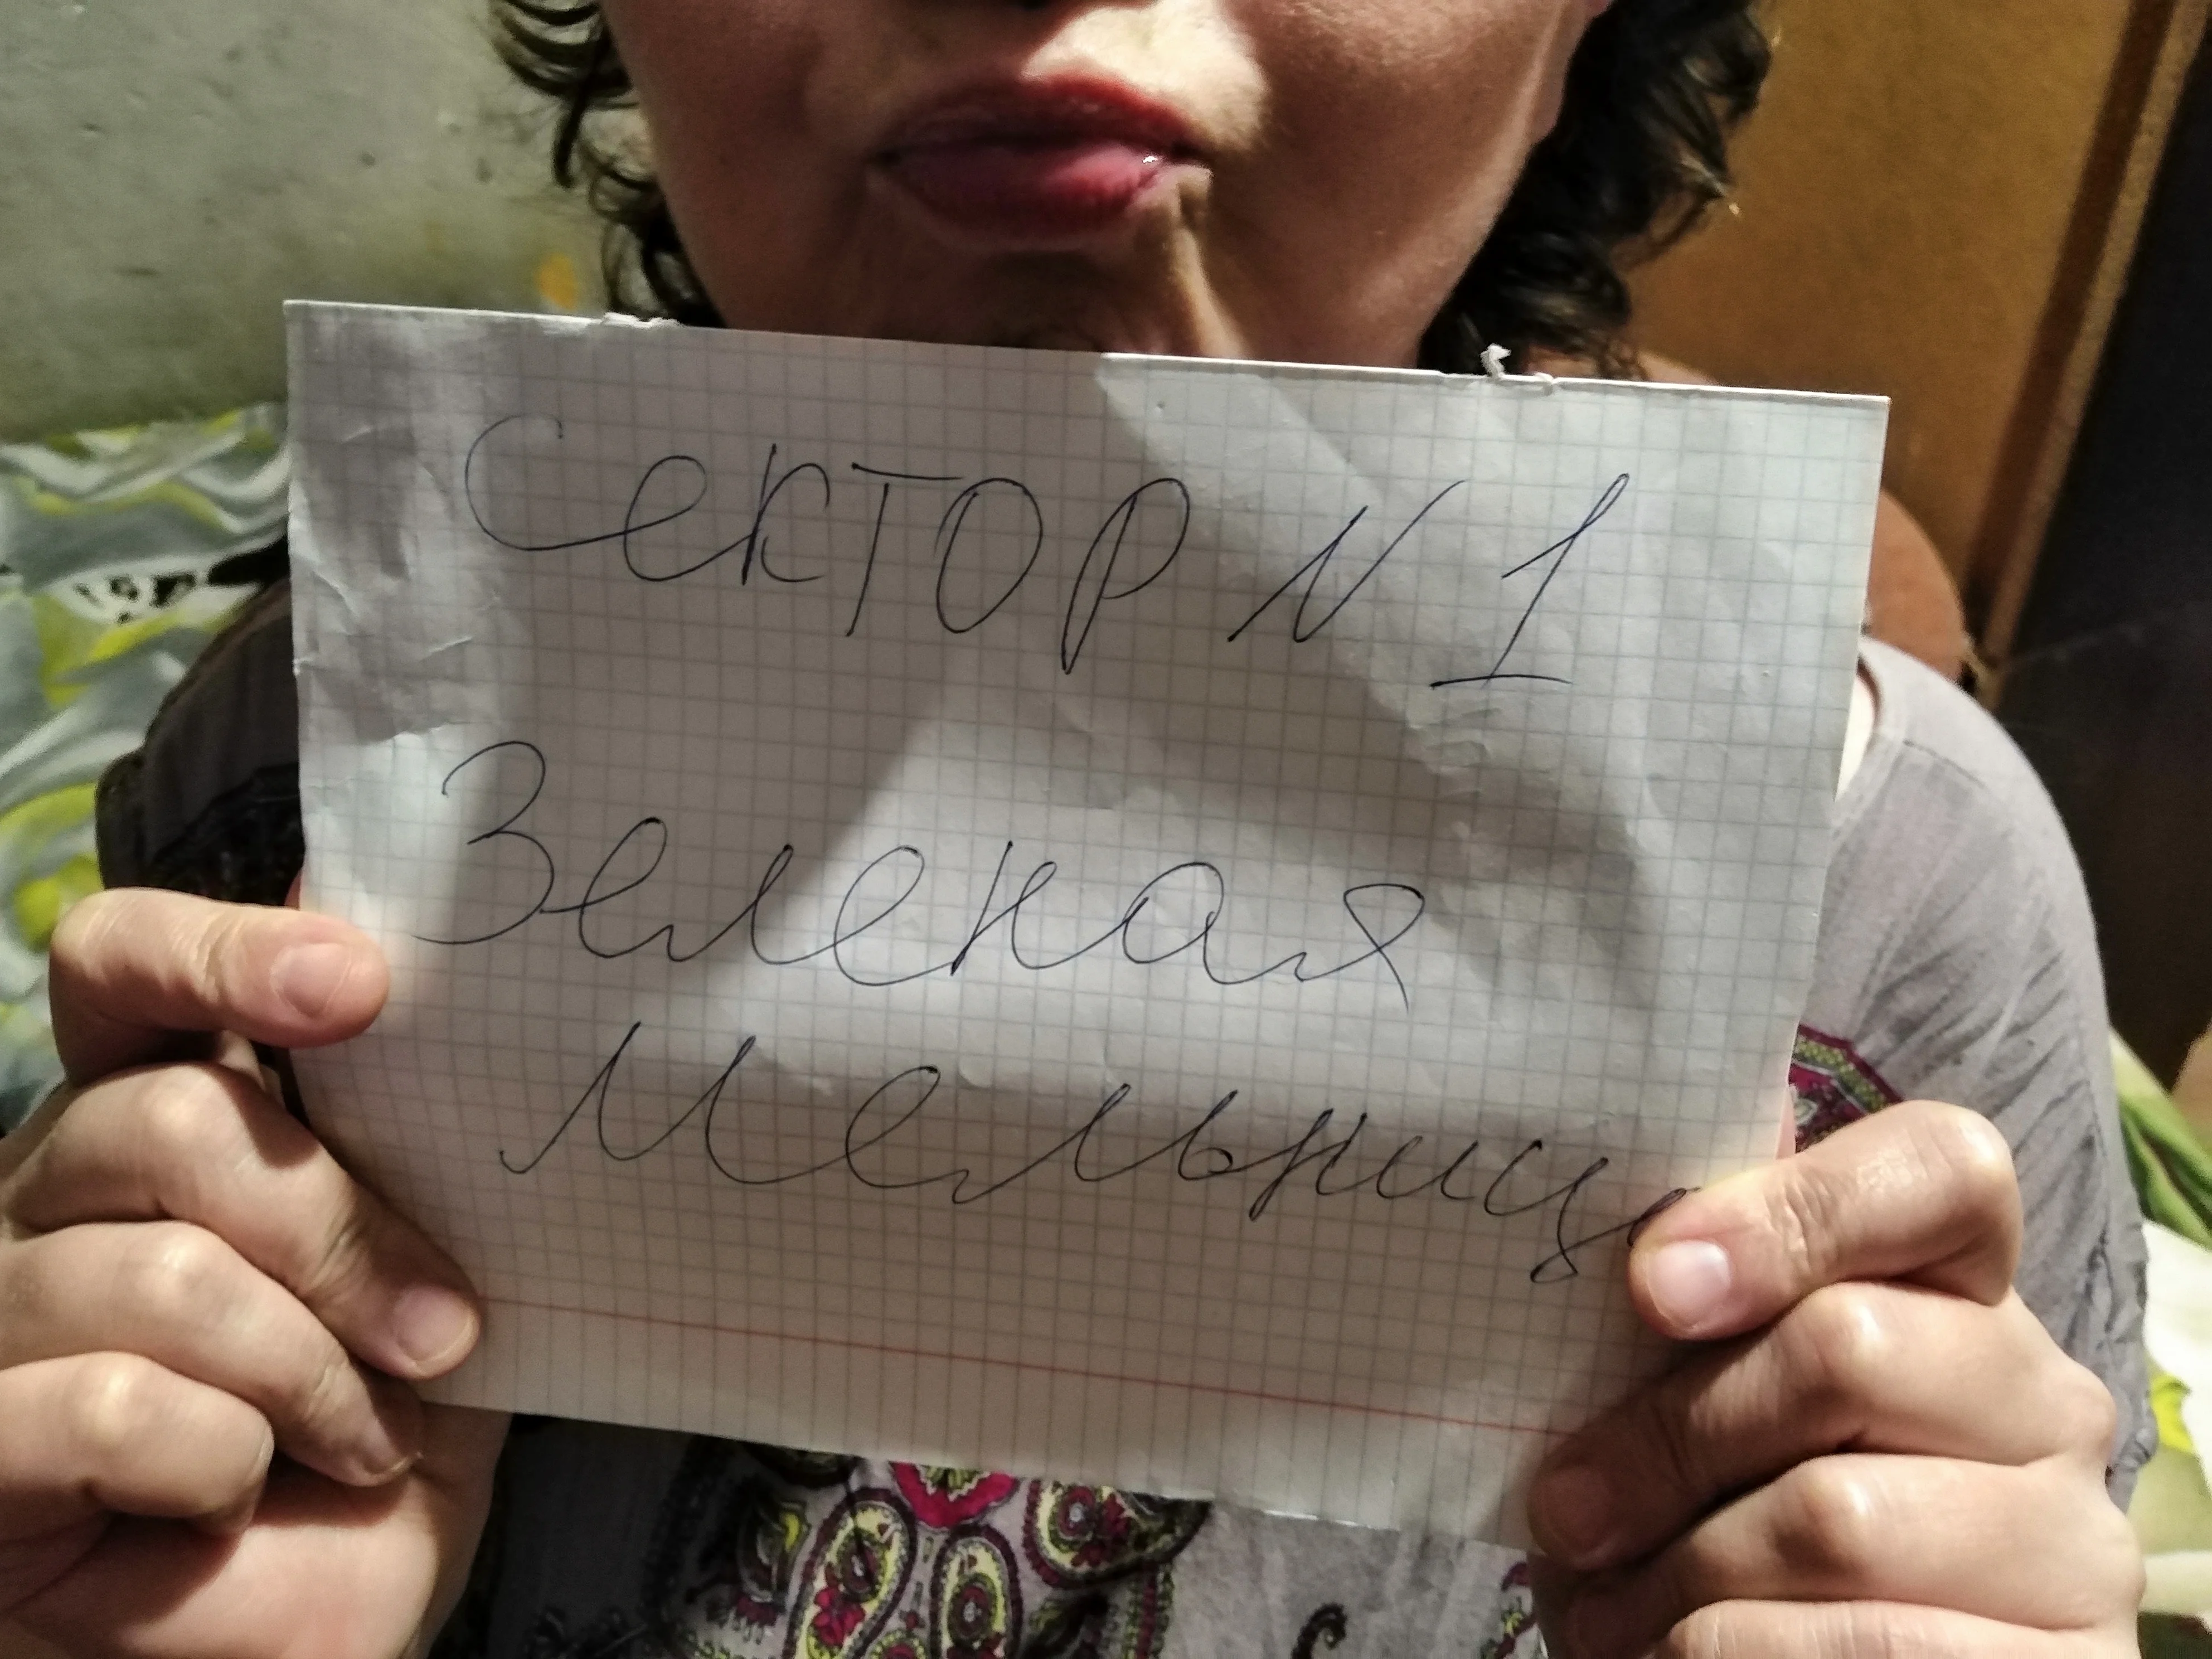 Сектор N 1
Зеленая
Мельница